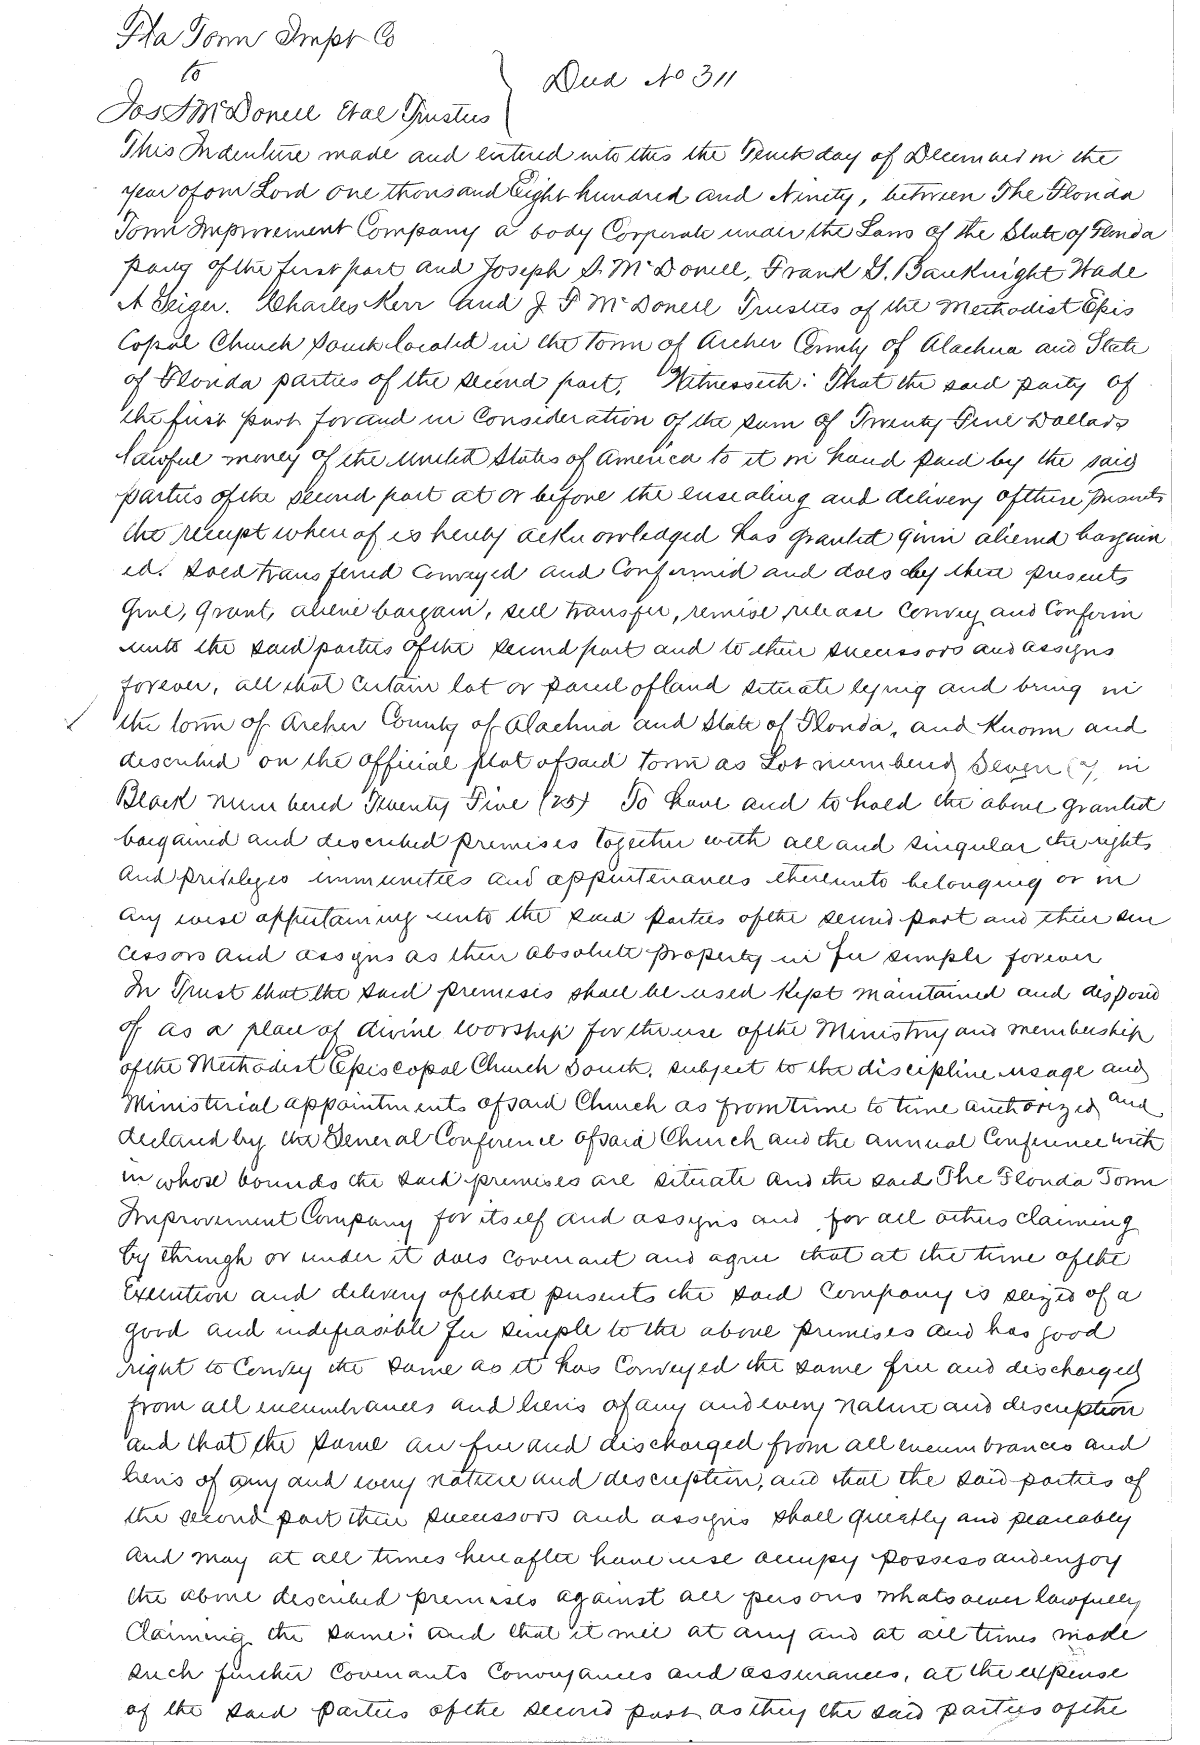 Fla Town Impt Co
to
Deed No 311
Jos S McDonell Etal Trustees
This Indenture made and entered into this the Tenth day of December in the
year of our Lord one thousand Eight hundred and Ninety, between The Florida
Town Improvement Company a body Corporate under the Laws of the State of Florida
party of the first part and Joseph S. McDonell, Frank G. Bauknight Wade
A Geiger. Charles Kerr and J F McDonell Trustees of the Methodist Epis
Copal Church South located in the town of Archer County of Alachua and State
of Florida parties of the second part, Witnesseth: That the said party of
the first part for and in Consideration of the sum of Twenty Five Dollars
lawful money of the United States of America to it in hand paid by the said
parties of the second part at or before the ensealing and delivery of these presents
the receipt whereof is hereby acknowledged has granted given aliened bargain
ed. sold transferred Conveyed and Confirmed and does by these presents
Give, Grant, aliene bargain, sell transfer, remise, release Convey and Confirm
unto the said parties of the second part and to their successors and assigns
forever, all that Certain lot or parcel of land situate lying and being in
the town of Archer County of Alachua and State of Florida, and Known and
described on the official plat of said town as Lot numbered Seven (7) in
Block numbered Twenty Five (25) To have and to hold the above granted
bargained and described premises together with all and singular the rights
and privileges immunities and appurtenances thereunto belonging or in
any wise appertaining unto the said parties of the second part and their suc
cessors and assigns as their absolute property in fee simple forever
In Trust that the said premises shall be used Kept maintained and disposed
of as a place of divine worship for the use of the Ministry and membership
of the Methodist Episcopal Church South. subject to the discipline usage and
Ministerial appointments of said Church as from time to time authorized and
declared by the General Conference of said Church and the annual Conference with
in whose bounds the said premises are situate and the said The Florida Town
Improvement Company for itself and assigns and for all others claiming
by through or under it does covenant and agree that at the time of the
Execution and delivery of these presents the said Company is seized of a
good and indefeasible fee simple to the above premises and has good
right to Convey the same as it has Conveyed the same free and discharged
from all encumbrances and liens of any and every nature and description
and that the same are free and discharged from all encumbrances and
liens of any and every nature and description, and that the said parties of
the second part their successors and assigns shall quietly and peaceably
and may at all times hereafter have use occupy possess and enjoy
the above described premises against all persons whatsoever lawfully
Claiming the same; and that it will at any and at all times made
such further Covenants Conveyances and assurances, at the expense
of the said parties of the second part as they the said parties of the